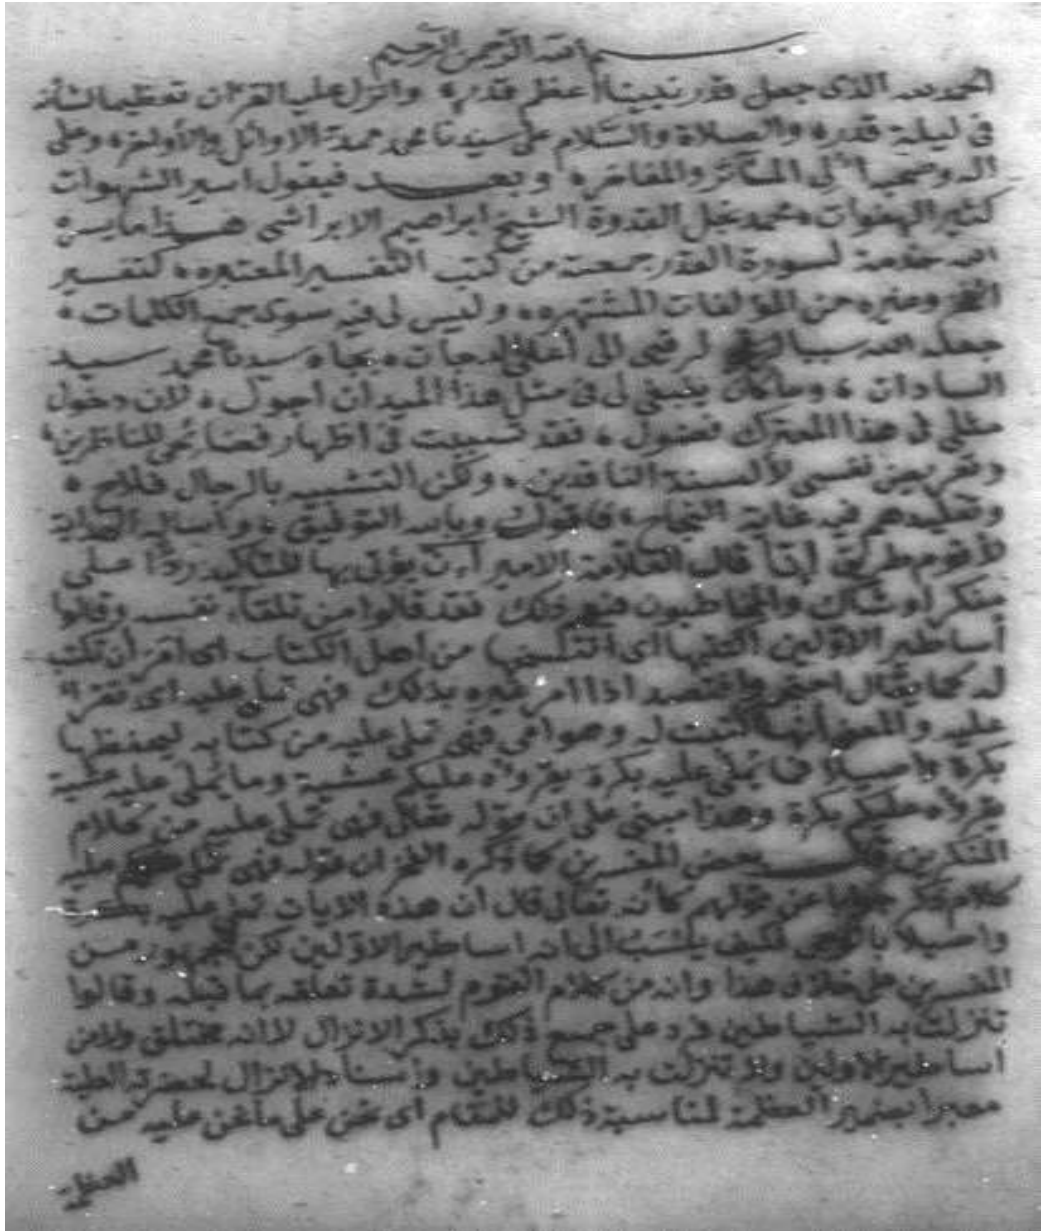 بسم الله الرحمن الرحيم
الحمد لله الذى جعل قدر نبينا أعظم قدره وانزل عليه القرآن تعظيما لشأنه
فى ليلة قدره والصلاة والسلام على سيدنا محمد عمدة الاوائل والأواخره وعلى
اله وصحبه اولى المآثر والمفاخره وبعد فيقول اسير الشهوات
كثير الهفوات محمد نجل القدوة الشيخ ابراهيم الابراشى هذا ما يسره
الله خدمة لسورة القدر جمعته من كتب التفسير المعتبره كتفسير
الفخر وغيره من المؤلفات المشتهره وليس لى فيه سوى جمع الكلمات
جعله الله سببا لرقى الى أعلى الدرجات بجاه سيدنا محمد سيد
السادات وما كان ينبغى لى فى مثل هذا الميدان اجول لان دخول
مثلى فى هذا المعترك فضول فقد تسببت فى اظهار فضائحى للناظرين
وتعريض نفسى لألسنة الناقدين ولكن التشبه بالرجال فلاح
وتقليدهم فيه غاية النجاح فاقول وبالله التوفيق واساله الهداية
لأقوم طريق إنا قال العلامة الامير ان يؤتى بها للتأكيد ردا على
منكر أو شاك والمخاطبون فيهم ذلك فقد قالوا من تلقاء نفسه وقالوا
أساطير الاولين اكتتبها اى من اهل الكتاب اى امر ان تكتب
له كما يقال احتجم وافتصد اذا امر غيره بذلك فهى تملى عليه اى تقرأ
عليه والمعنى أنها كتبت له وهو امى فهى تملى عليه من كتابه ليحفظها
بكرة واصيلا تملى عليه بكرة يقرؤه عليكم عشية وما يملى عليه عشية
يقرؤه عليكم بكرة وهذا مبنى على ان قوله تعالى فهى تملى عليه من كلام
المنكرين بعض المفسرين كما ذكره الفخر ان قوله فهى تملى عليه
كلام عن قولهم كأنه تعالى قال ان هذه الايات تملى عليه بكرة
واصيلا فكيف ينسب الى انه اساطير الاولين لكن الجمهور من
المفسرين على خلاف هذا وانه من كلام القوم لشدة تعلقه بما قبله وقالوا
تنزلت به الشياطين فرد على جميع ذلك بذكر الانزال لا انه مختلق ولا من
اساطير الاولين ولا تنزلت به الشياطين وأسند الانزال لحضرته العلية
معبرا بضمير العظمة لمناسبة ذلك للمقام اى نحن على ما نحن عليه من
العظمة